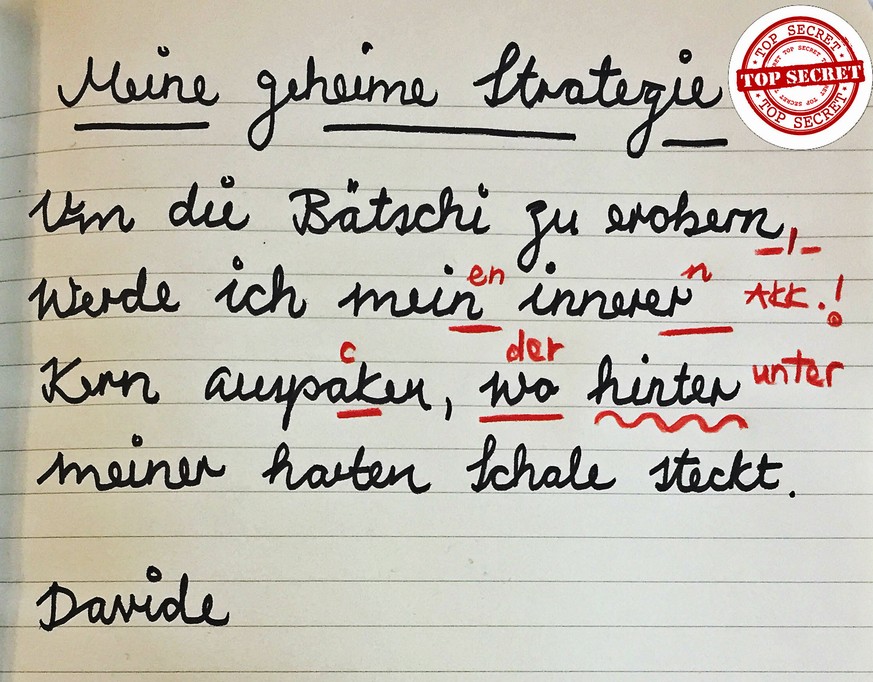 TOP SECRET
TOP SECRET
TOP SECRET
TOP SECRET
TOP SECRET
Meine geheime Strategie
Um die Bätschi zu erobern,
en n
Werde ich mein innerer Akk.!
c der
Kern auspaken, wo hinter unter
meiner harten Schale steckt.
Davide